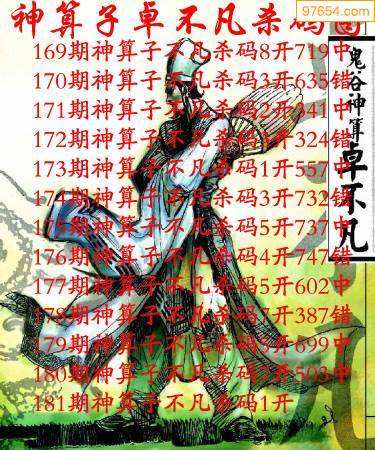 97654.com
神算子卓不凡杀码图
169期神算子不凡杀码8开719中
170期神算子不凡杀码3开635错
171期神算子不凡杀码2开341中
172期神算子不凡杀码开324错
173期神算子不凡杀码1开557中
174期神算子不凡杀码3开732错
175期神算子不凡杀码5开737中
176期神算子不凡杀码4开747错
177期神算子不凡杀码5开602中
178期神算子不凡杀码7开387错
179期神算子不凡杀码开699中
180期神算子不凡杀码开503中
181期神算子不凡杀码1开
鬼谷神算
卓不凡